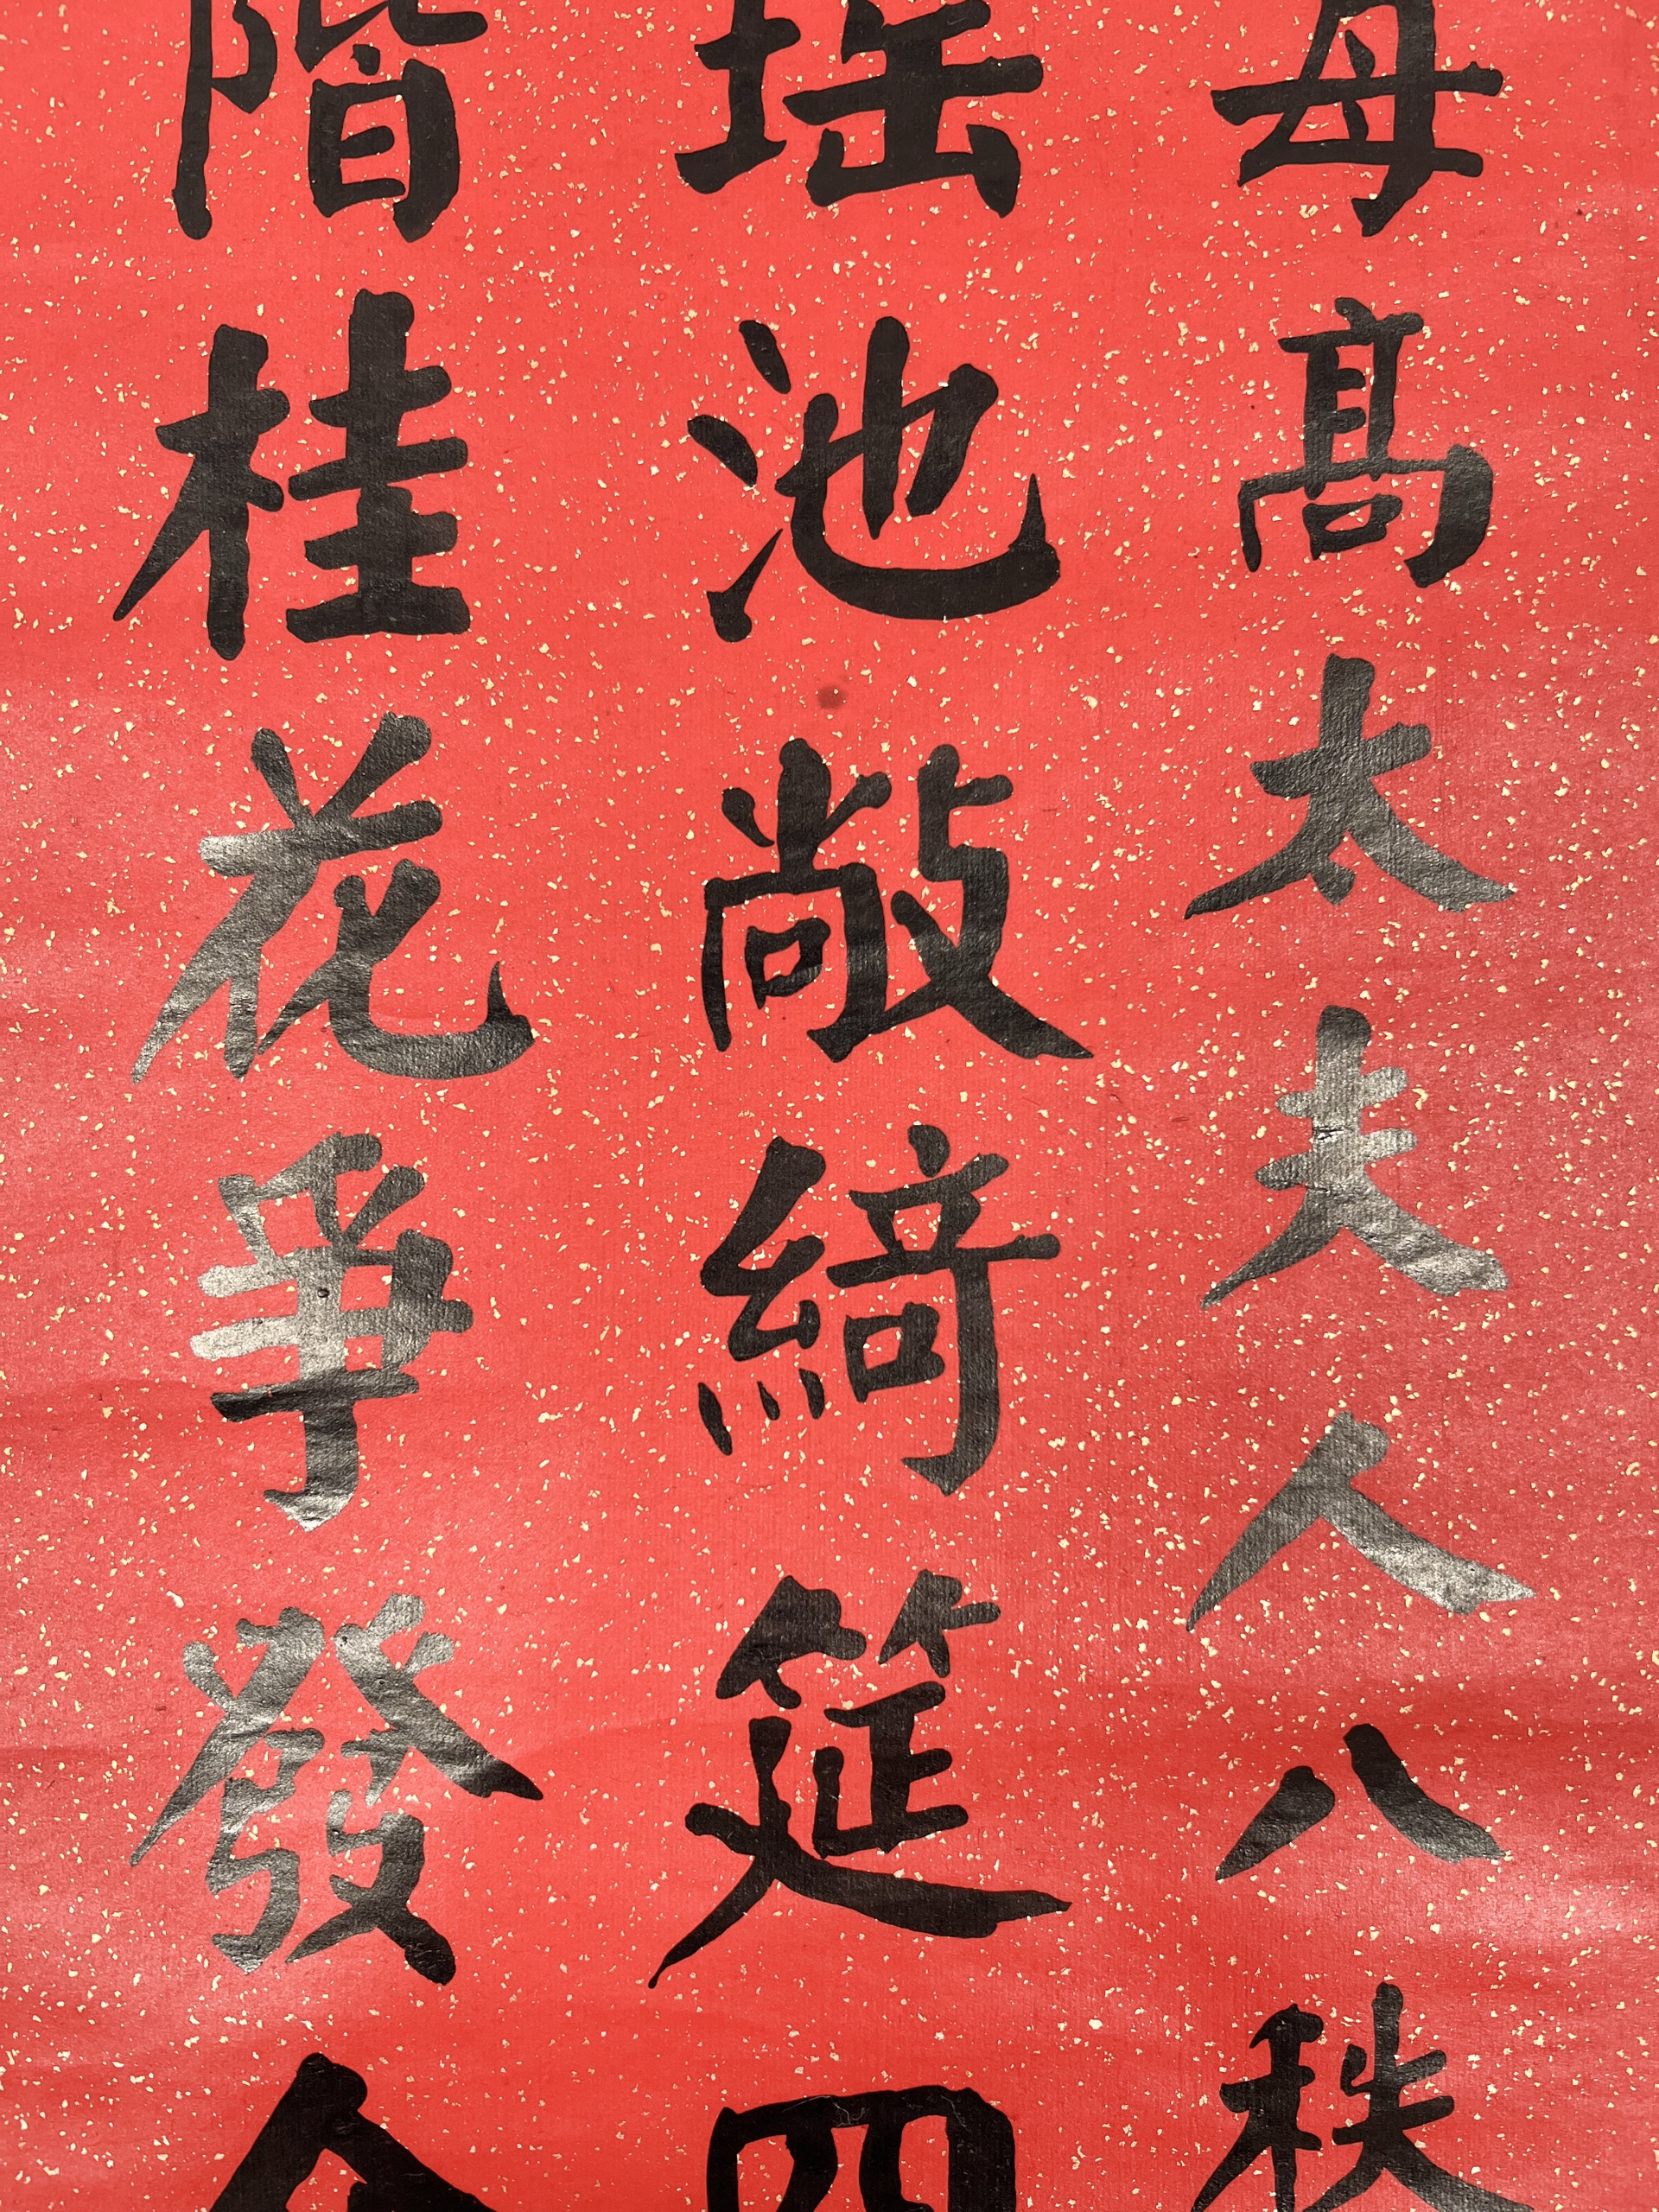 母髙太夫人八秩
瑶池敞綺筵四
階桂花爭發